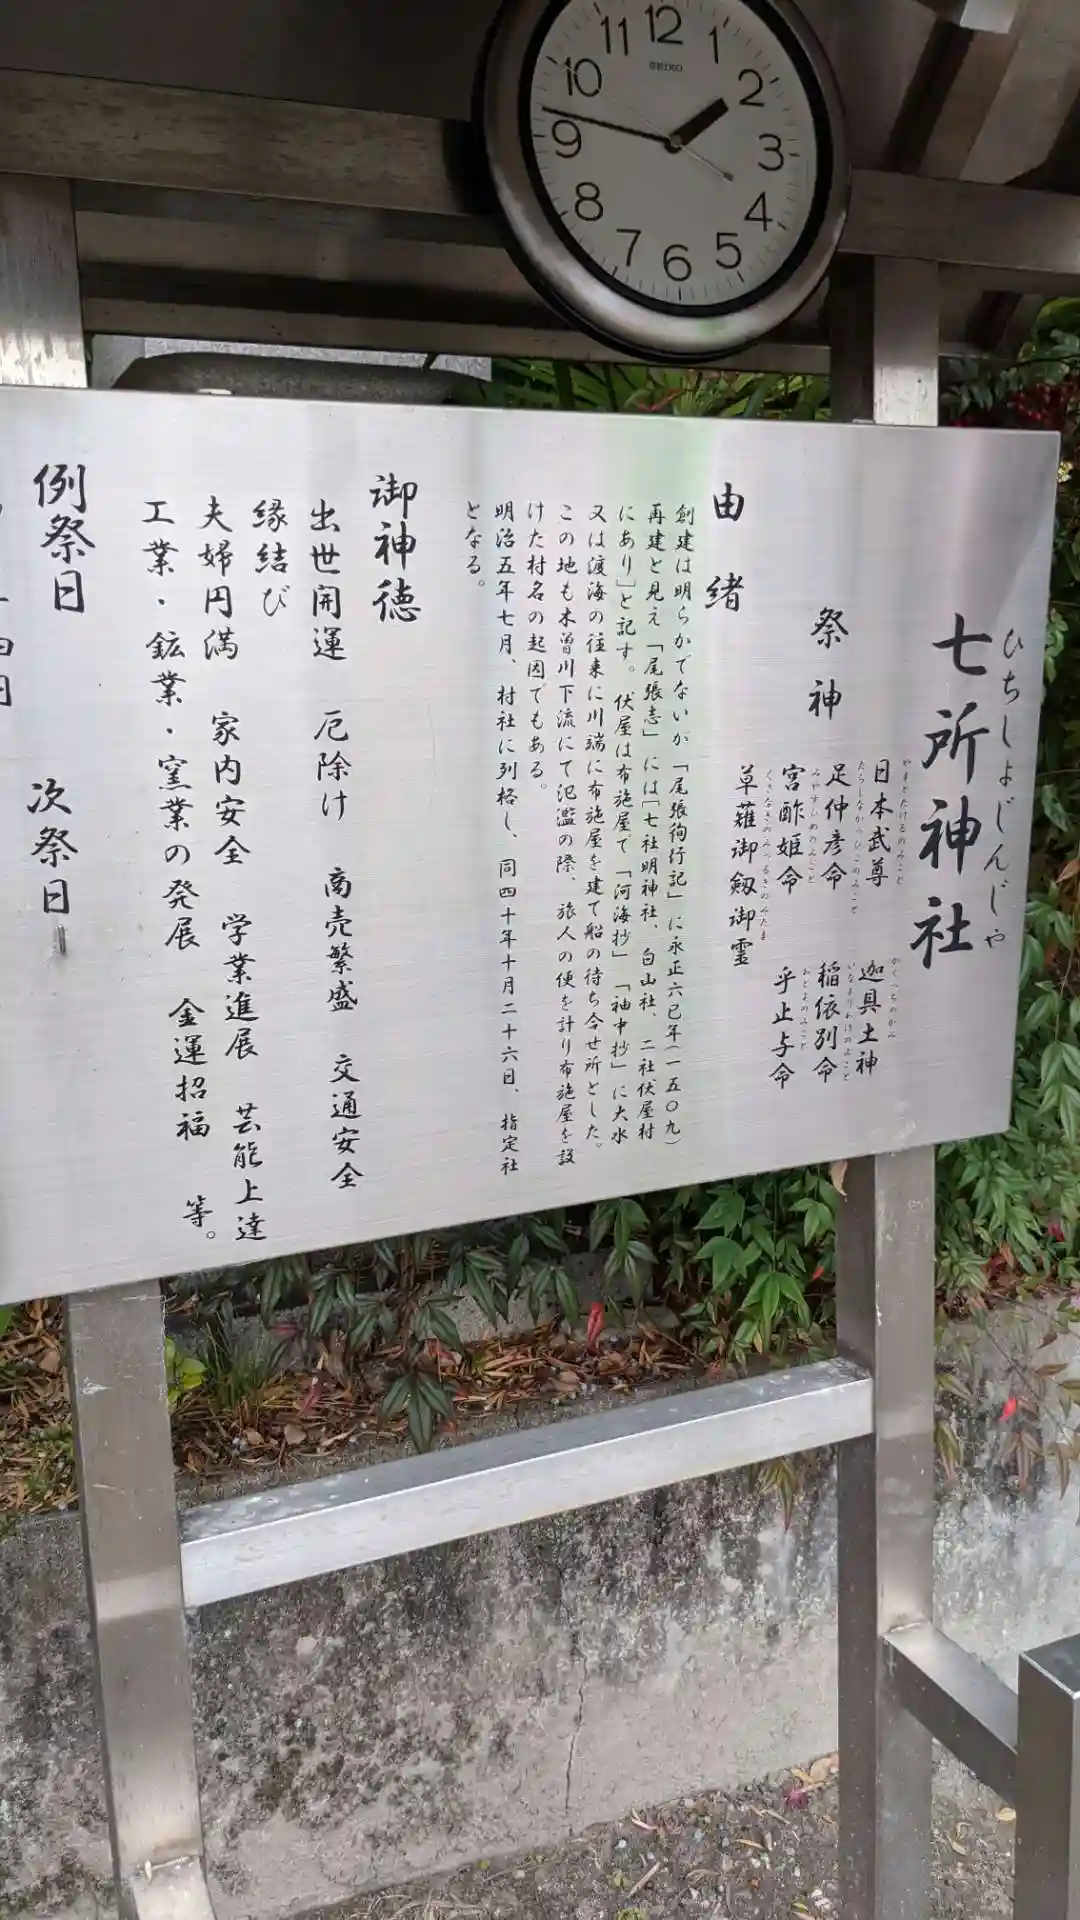 12
1
2
3
4
5
6
7
8
9
10
11
SEIKO
ひちしょじんじゃ
七所神社
祭神
やまとたけるのみこと
日本武尊
かぐつちのかみ
迦具土神
たらしなかつひこのみこと
足仲彦命
いなよりわけのみこと
稲依別命
みやすひめのみこと
宮酢姫命
おとよのみこと
乎止与命
くさなぎのみつるぎのみたま
草薙御剱御霊
由緒
創建は明らかでないが「尾張徇行記」に永正六巳年(一五〇九)
再建と見え「尾張志」には[七社明神社、白山社、二社伏屋村
にあり]と記す。伏屋は布施屋で「河海抄」「袖中抄」に大水
又は渡海の往来に川端に布施屋を建て船の待ち合せ所とした。
この地も木曽川下流にて氾濫の際、旅人の便を計り布施屋を設
けた村名の起因でもある。
明治五年七月、村社に列格し、同四十年十月二十六日、指定社
となる。
御神徳
出世開運 厄除け 商売繁盛 交通安全
縁結び
夫婦円満 家内安全 学業進展 芸能上達
工業・鉱業・窯業の発展 金運招福 等。
例祭日 次祭日